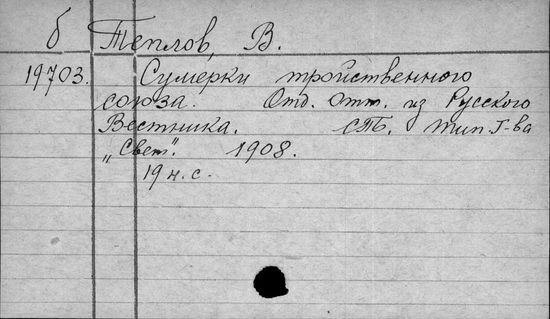 б Теплов, В.
19703. Сумерки тройственного
союза. Отд. Отт. из Русского
Вестника. СПб. тип. Т-ва
„Свет". 1908.
19 н. с.